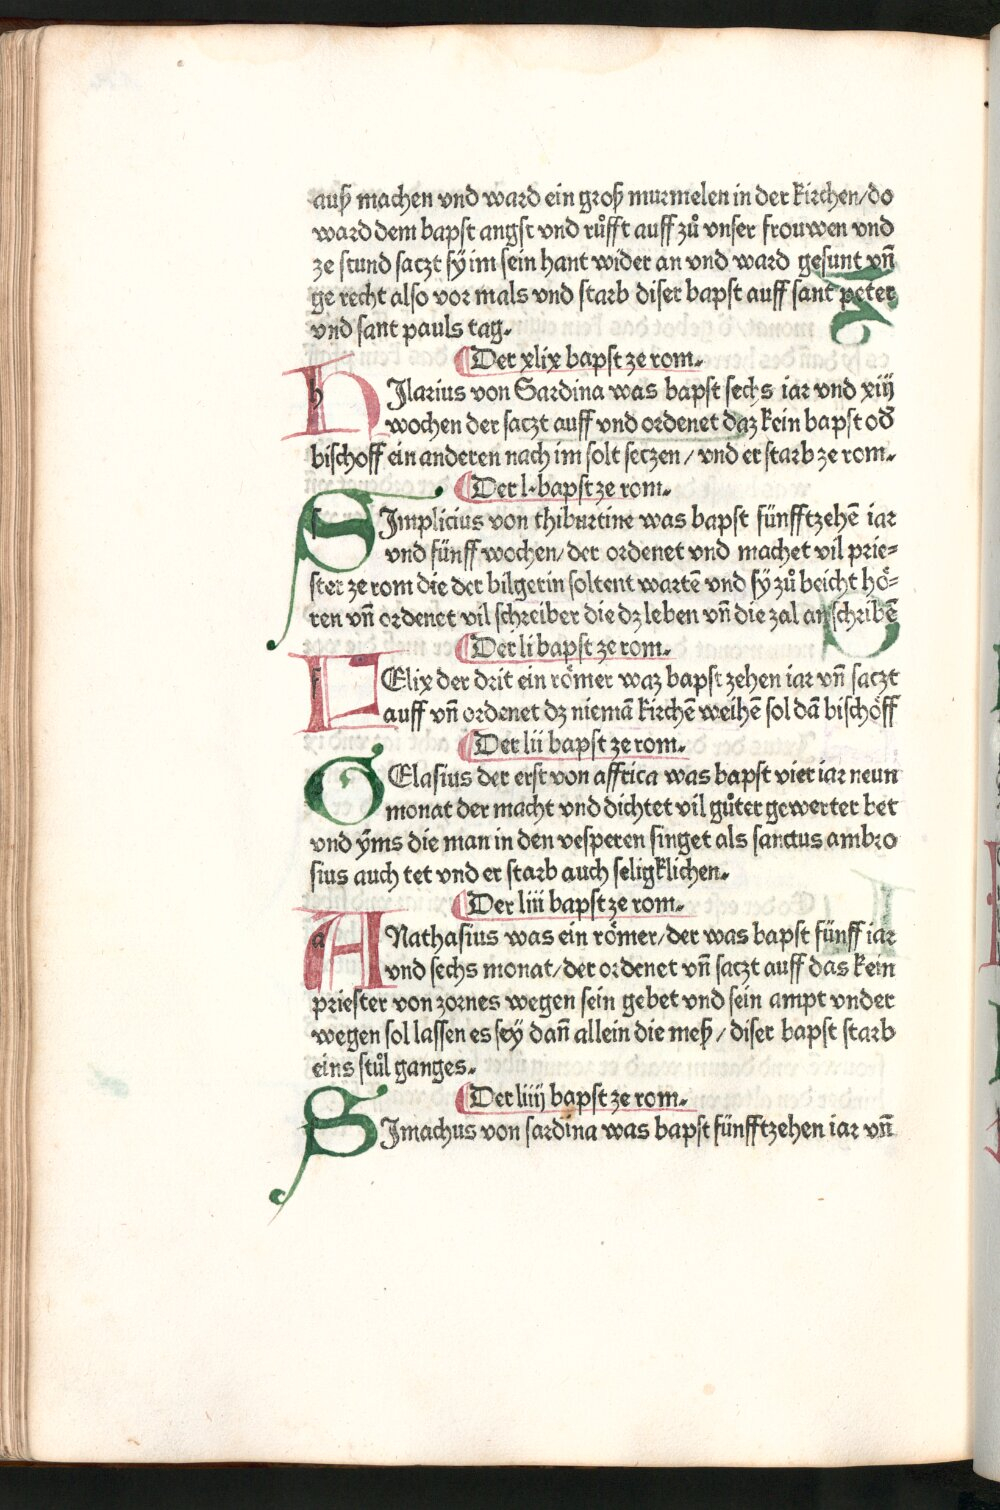 auß machen vnd ward ein groß murmelen in der kirchen/do
ward dem bapst angst vnd růfft auff zů vnser frouwen vnd
ze stund saczt sÿ im sein hant wider an vnd ward gesunt vn̄
ge recht also vor mals vnd starb diser bapst auff sant peter
vnd sant pauls tag.
¶Der xlix bapst ze rom.
HIlarius von Sardina was bapst sechs iar vnd xiij
wochen der saczt auff vnd ordenet daz kein bapst od̕
bischoff ein anderen nach im solt seczen/ vnd er starb ze rom.
¶Der l. bapst ze rom.
SImplicius von thiburtine was bapst fünfftzehē iar
vnd fünff wochen/ der ordenet vnd machet vil prie⸗
ster ze rom die der bilgerin soltent wartē vnd sÿ zů beicht hö⸗
ren vn̄ ordenet vil schreiber die dz leben vn̄ die zal an schribē
¶Der li bapst ze rom.
FElix der drit ein römer waz bapst zehen iar vn̄ saczt
auff vn̄ ordenet dz niemā kirchē weihē sol dā bischoff
¶Der lii bapst ze rom.
GElasius der erst von affrica was bapst vier iar neun
monat der macht vnd dichtet vil gůter gewerter bet
vnd ÿms die man in den vesperen singet als sanctus ambro
sius auch tet vnd er starb auch seligklichen.
¶Der liii bapst ze rom.
ANathasius was ein römer/der was bapst fünff iar
vnd sechs monat/der ordenet vn̄ saczt auff das kein
priester von zornes wegen sein gebet vnd sein ampt vnder
wegen sol lassen es seÿ dan̄ allein die meß/ diser bapst starb
eins stůl ganges.
¶Der liiij bapst ze rom.
SImachus von sardina was bapst fünfftzehen iar vn̄